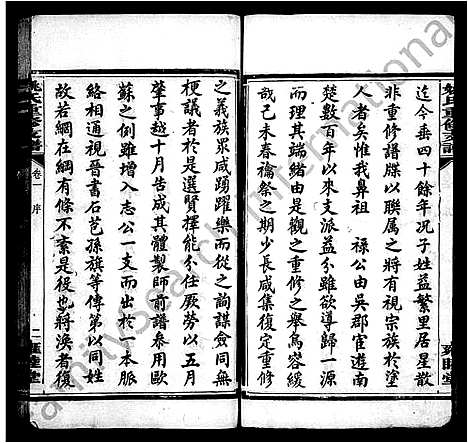 姚氏重修支譜
迄今垂四十餘年况子姓益繁里居星散
非重修譜牒以聯属之將有視宗族於塗
人者矣惟我鼻祖 祿公由吳郡宦遊南
楚數百年以來支派益分雖欲導歸一源
而理其端緒由是觀之重修之舉烏容緩
哉己未春禴祭之期少長咸集復定重修
之義族衆咸踴躍樂而從之詢謀僉同無
梗議者於是選賢擇能分任厥勞以五月
肇事越十月告成其體製師前譜泰用歐
蘇之例雖增入志公一支而出於一本脈
絡相通視晉書石苞孫旗等傳第以同姓
故若綱在綱有條不紊是役也將渙者復
卷一 序
二
FamilySearch International